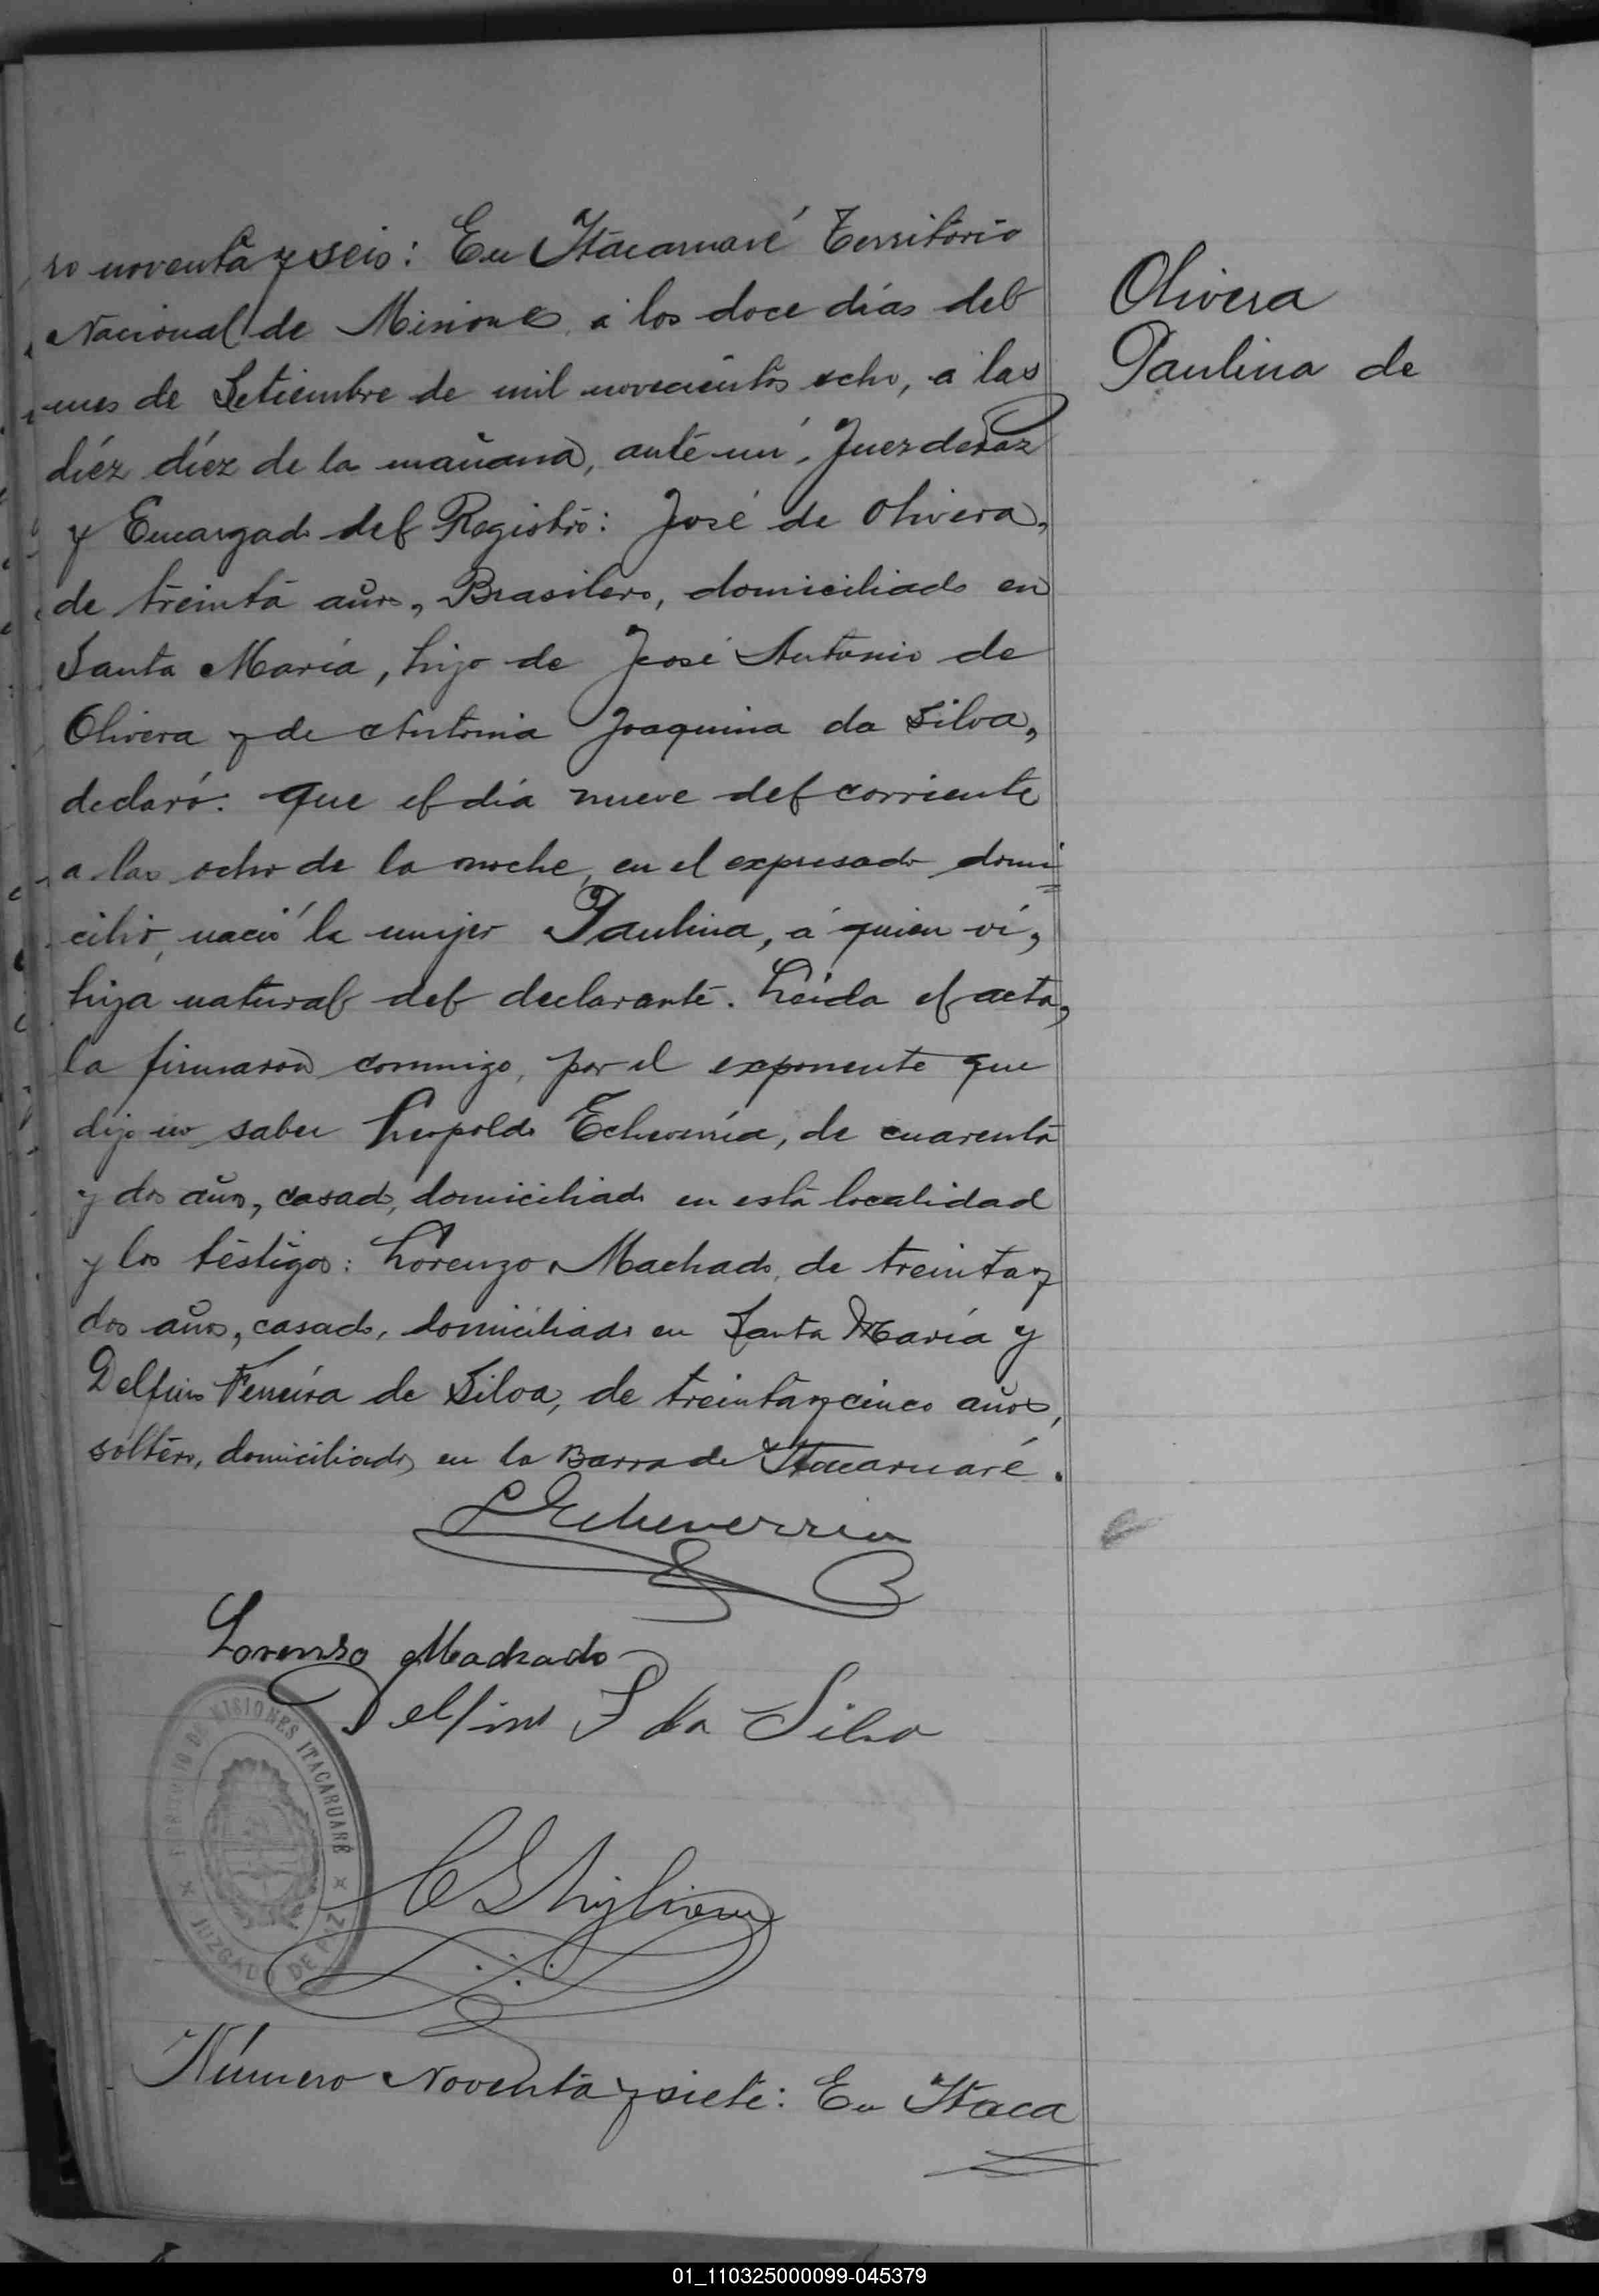 ro noventa y seis: En Itacaruaré Territorio
Nacional de Misiones, á los doce días del
mes de Setiembre de mil novecientos ocho, a las
diéz díez de la mañana, ante mí, Juez de Paz
y Encargado del Registro: José de Olivera,
de treinta años, Brasilero, domiciliado en
Santa María, hijo de José Antonio de
Olivera y de Antonia Joaquina da Silva,
declaró: que el día nueve del corriente
a las ocho de la noche, en el expresado domi
cilio, nació la mujer Paulina, á quien ví,
hija natural del declarante. Leída el acta,
la firmaron conmigo, por el exponente que
dijo no saber Leopoldo Echeverría, de cuarenta
y dos años, casado, domiciliado en esta localidad
y los testigos: Lorenzo Machado, de treinta y
dos años, casado, domiciliado en Santa María y
Delfino Ferreira de Silva, de treinta y cinco años,
soltero, domiciliado en la Barra de Itacaruaré.
Olivera
Paulina de
L Echeverria
Lorenzo Machado
Delfino F da Silva
TERRITORIO DE MISIONES ITACARUARÉ
JUZGADO DE PAZ
Número Noventa y siete: En Itaca
01_110325000099-045379